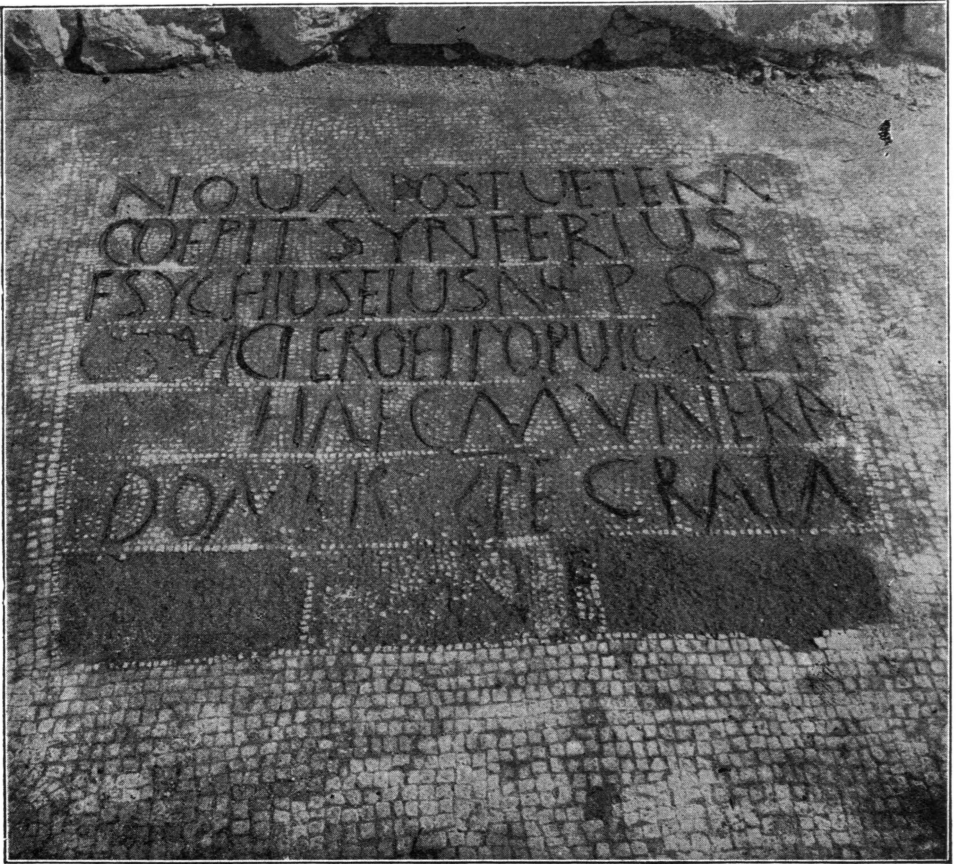 NOUA POST UETERA
COEPIT SYNFERIUS
ESYCHIUS EIUS NEPOS
CLERO ET POPULO
HAEC MVNERA
DOMUS XPE GRATA